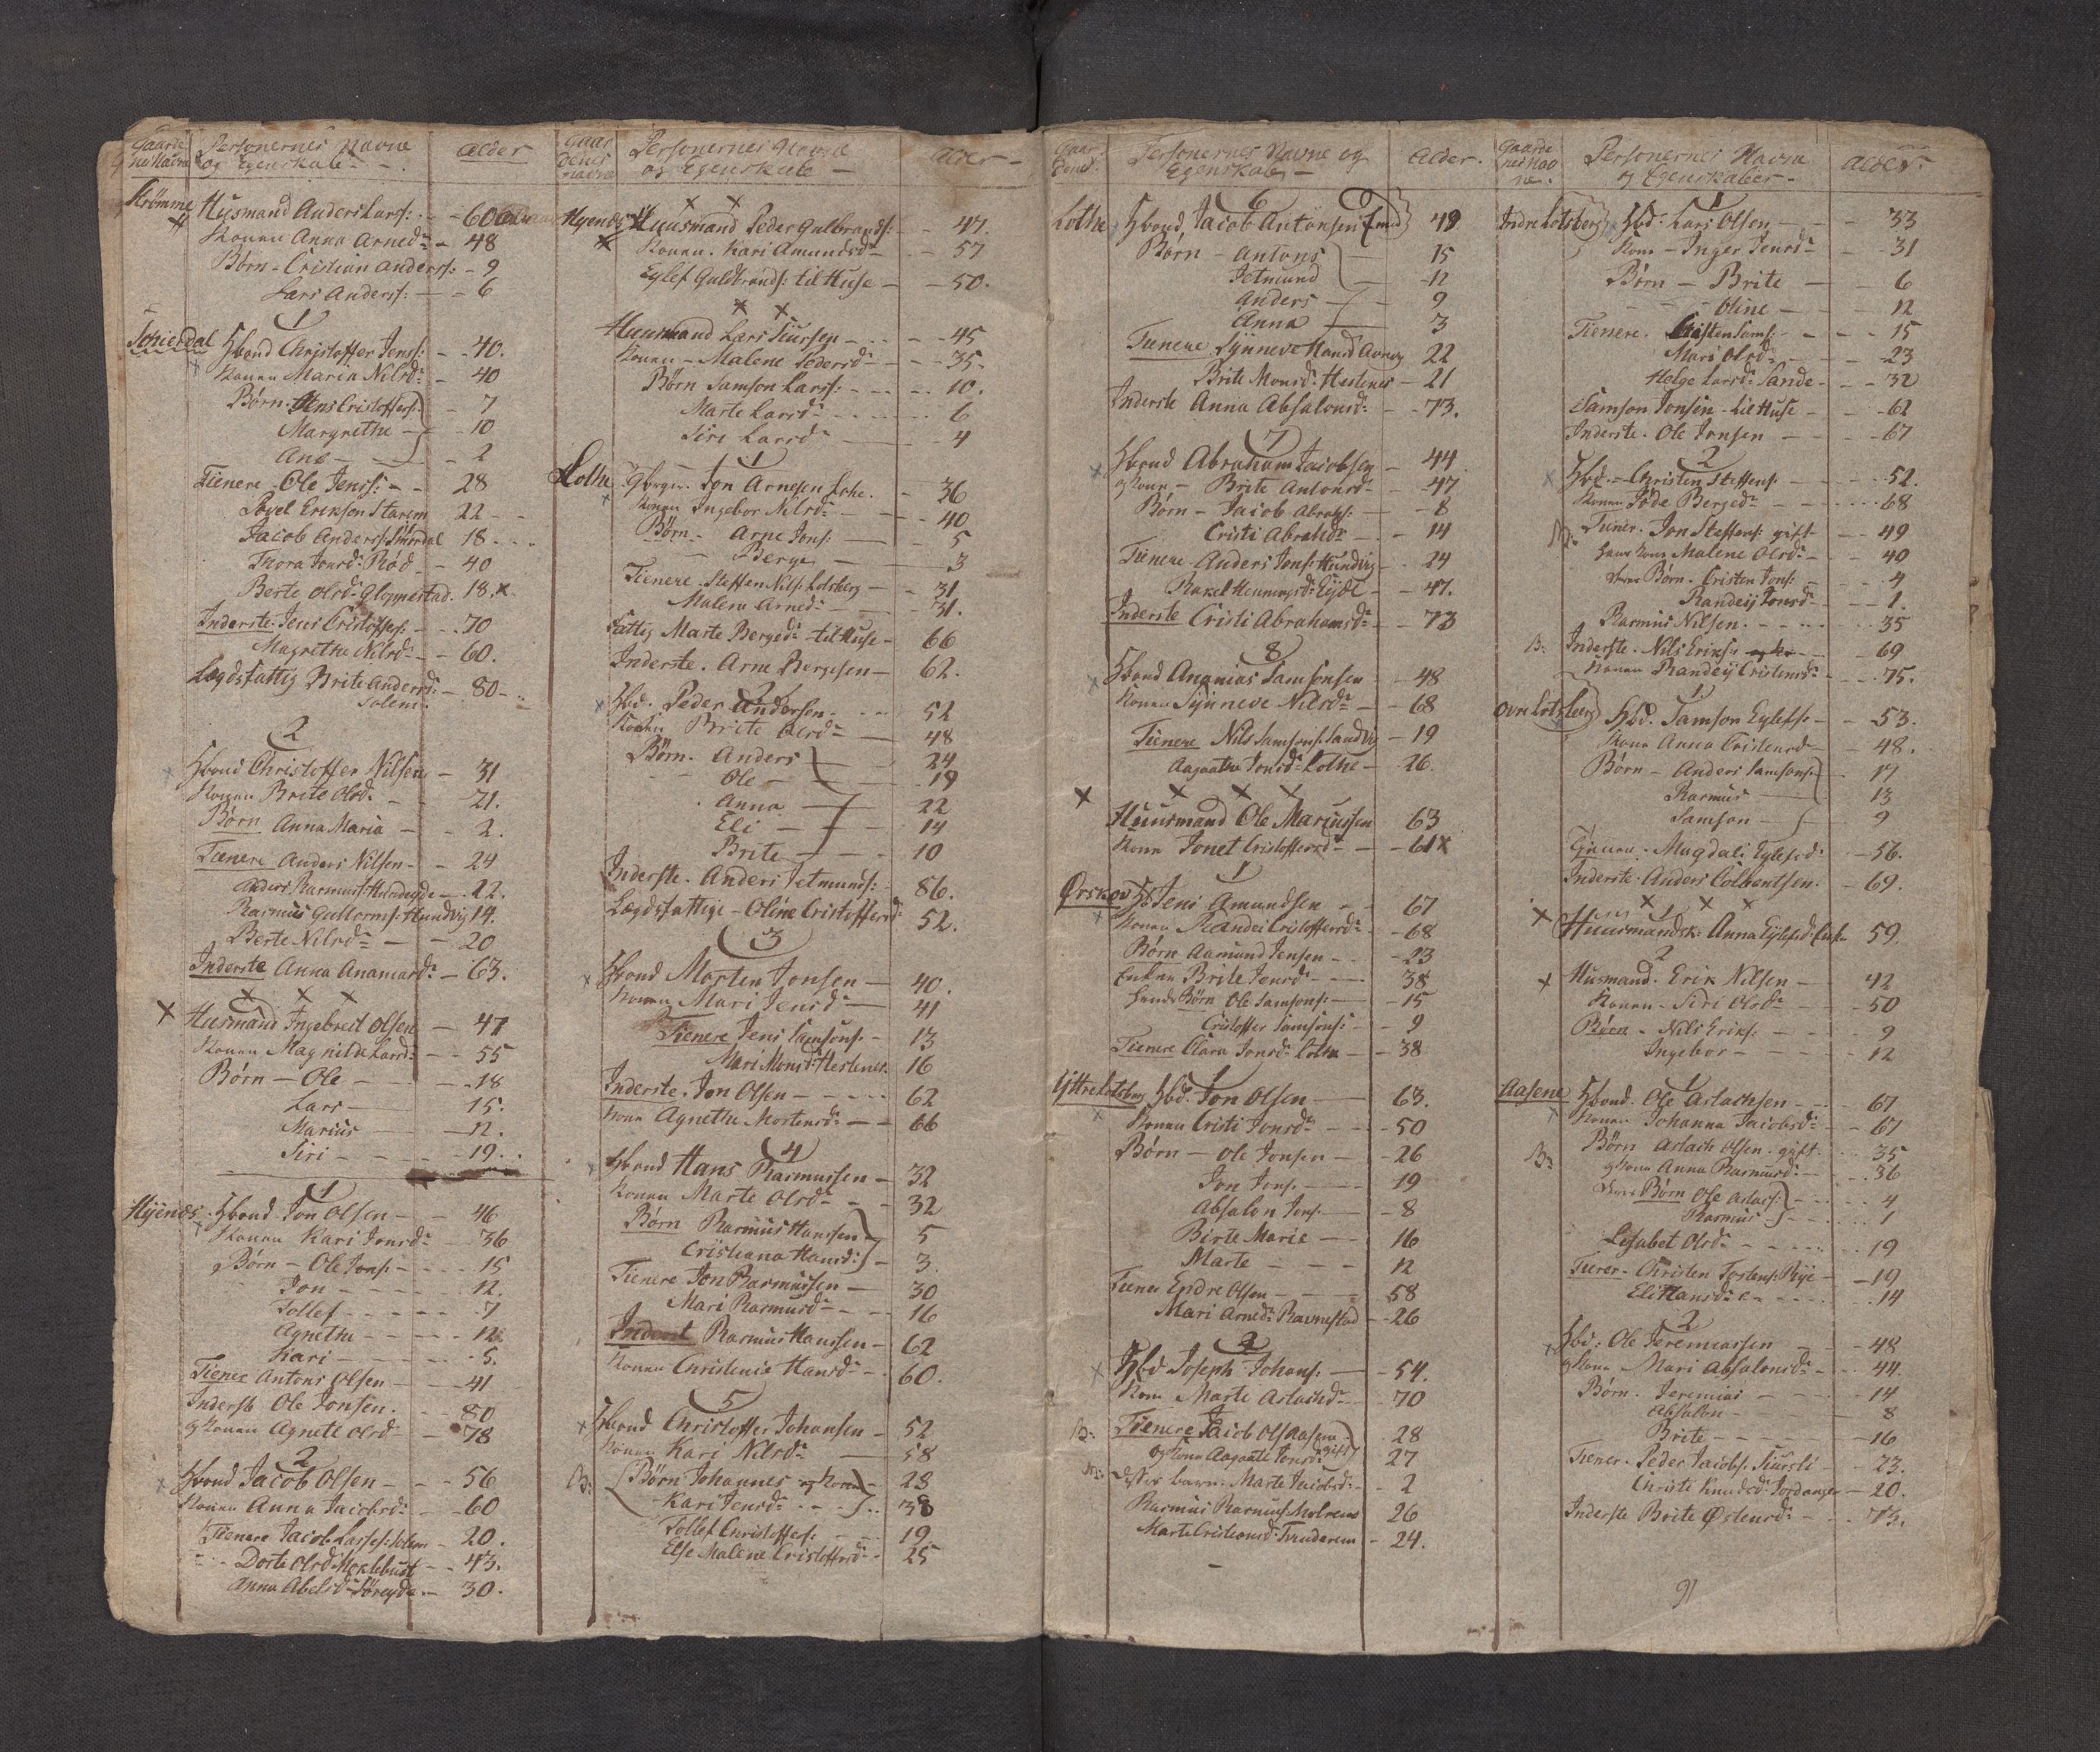 Gaarde
nes Navne
Personernes Navne
og Egenskab
Alder
Strømme Husmand Anders Larss: 60
Konen Anna Arnedr 48
Børn - Cristian Anderss: 9
Lars Anderss: 6
1
Hbond Christoffer Jenss: 40.
Konen Maria Nilsdr 40
Børn. Jens Cristoffers: 7
Margrethe 10
Ane 2
Tienere Ole Jenss: 28
Erikson Starem 22
Jacob Anderss: Smørdal 18
Thora Jonsdr Rød 40
Berte Olsdr Gloppestad. 18. x
Inderste Jens Cristoffers: 70
Magrethe Nilsdr 60.
Lægdsfattig Brite Andersdr 80
Solem.
2
Hbond Christoffer Nilsen 31
Konen Brite Olsdr 21.
Børn Anna Maria 2.
Tienere Anders Nilsen 24
Anders Rasmuss: Hundeyde 22.
Rasmus Gullorms: Hundvig 14.
Berte Nilsdr 20
Inderste Anna 63.
x x x
x Husmand Ingebreit Olsen 47
Konen Magnilde Larsdr 55
Børn - Ole 18
Lars 15.
Marius 12.
Siri 19.
1
Hyenes Hbond Jon Olsen 46
Konen Kari Jonsdr 36
Børn - Ole Jons: 15
Jon 12.
Tollef 7
Agnethe 12
Kari 5.
Tiener Antons Olsen 41
Inderst Ole Jonsen. 80
Konen Agnete Olsdr 78
2
Hbond Jacob Olsen 56
Konen Anna Jacobsdr 60
Tienere Jacob Lasses: Solem 20.
Dorte Olsdr Mocklebust 43.
Anna Abelsdr Søreyde 30.
Gaar
denes
Navne
Personernes Navne
og Egenskab
Alder
x x
Hyenes Huusmand Peder Gulbrands: 47.
Konen. Kari Amundsdr 57
Eylef Guldbrands: til Huse 50.
x x
Huusmand Lars Siursen 45
Konen - Malene Pedersdr 35.
Børn Samson Larss: 10.
Marte Larsdr 6
Siri Larsdr 4
1
Lothe Jon Arnesen Lohe. 36
Konen Ingebor Nilsdr 40
Børn. Arne Jons: 5
Berge 3
Tienere. Steffen Nils: Lotsberg 31
Malene Arnedr 31.
Fattig Marte Bergedr til Huse 66
Inderste. Arne Bergesen 62.
2
Hbd. Peder Anderson 52
Konen Brite Olsdr 48
Børn. Anders 24
Ole 19
Anna 22
Eli 14
Brite 10
Inderste. Anders Jetmunds: 86.
Lægdsfattige - Oline Cristoffersdr 52.
3
Hbond Morten Jonsen 40.
Konen Mari Jensdr 41
Tienere Jens Samsons: 13
Mari Monsdr Hestenes 16
Inderste. Jon Olsen 62
Kone Agnethe Mortensdr 66
4
Hbond Hans Rasmussen 32
Konen Marte Olsdr 32
Børn Rasmus Hanssen 5
Cristiana Hansdr 3.
Tienere Jon Rasmussen 30
Mari Rasmusdr 16
Inderst Rasmus Hanssen 62
Konen Christence Hansdr 60.
5
Hbond Christoffer Johansen 52
Konen Kari Nilsdr 58
B: Børn Johannes og Kone 28
Kari Jensdr 38
Tollef Christoffers: 19
Else Malene Cristoffersdr 25
Gaar
denes
Personernes Navne og
Egenskab
Alder.
6
Lothe Hbond Jacob Antonsen Enkemd 49
Børn - Antons 15
Jetmund 12
Anders 9
Anna 3
Tienere Synneve Hansd 22
Brite Monsdr Hestenes 21
Inderste Anna Absalonsdr 73.
7
Hbond Abraham Jacobsen 44
Konen - Brite Antonsdr 47
Børn - Jacob Abrahs: 8
Cristi Abrahdr 14
Tienere Anders Jons: Hundvig 24
Rakel Henningsdr Eyde 47.
Inderste Cristi Abrahamsdr 73
8
Hbond Ananias Samsonsen 48
Konen Synneve Nilsdr 68
Tienere Nils Samsons: Sandvig 19
Aagaathe Jonsdr Lothe 26.
x x x x
Huusmand Ole Mariussen 63
Kone Jonet Cristoffersdr 61 x
1
Ørskov Hb Jens Amundsen 67
Konen Randei Cristoffersdr 68
Børn Aamund Jensen 23
Enken Brite Jensdr 38
Hendes Børn Ole Samsons: 15
Cristoffer Samsons: 9
Tienere Clara Jonsdr Lothe 38
1
Yttre Lotsberg Hbd. Jon Olsen 63.
Konen Cristi Jonsdr 50
Børn - Ole Jonsen 26
Jon Jons: 19
Absalon Jons: 8
Birte Marie 16
Marte 12
Tiener Endre Olsen 58
Mari Arnedr Ravnestad 26
2
Hbd Joseph Johans: 54.
Kone Marte Aslachdr 70
B: Tienere Jacob Ols: Aasene 28
og Kone Aagaate Jonsdr gift 27
disses barn. Marte Jacobsdr 2
Rasmus Rasmuss: Molvær 26
Marte Cristiansd: 24.
Gaarde
nes Nav
ne.
Personernes Navne
og Egenskaber
Alder.
1
Indre Lotsberg Hbd: Lars Olsen 33
Kone - Inger Jensdr 31
Børn - Brite 6
Oline 12
Tienere. Cristen Sams: 15
Mari Olsdr 23
Helge Larsdr Sande 32
Samson Jonsen til Huse 62
Inderste. Ole Jonsen 67
2
Hbd. Christen Steffens: 52.
Konen Jode Bergedr 68
B: Tiener. Jon Steffens: gift 49
hans Kone Malene Olsdr 40
deres Børn. Cristen Jons: 4
Randeij Jonsdr 1.
Rasmus Nilsen 35
B: Inderste. Nils Eriks: 69
Konen Randeij Cristensdr 75.
1
Øvre Lotsberg Hbd. Samson Eylefs: 53.
Kone Anna Cristensdr 48.
Børn - Anders Samsons: 17
Rasmus 13
Samson 9
Magdali Eylefsdr 56.
Inderste. Anders Colbentsen. 69.
x x x
x Huusmandsk: Anna Eylefsd: Enke 59.
2
x Husmand. Erik Nilsen 42
Konen - Siri Olsdr 50
Børn - Nils Eriks: 9
Ingebor 12
1
Aasene Hbond. Ole Aslachsen 67
Konen Johanna Jacobsdr 67
B: Børn Aslach Olsen gift 35
Kone Anna Rasmusdr 36
deres Børn Ole Aslacs: 4
Rasmus 1
Lisabet Olsdr 19
Tiener. Christen Tostens: Rye 19
Eli Hansdr 14
2
Hbd: Ole Jeremiassen 48
Kone Mari Absalonsdr 44
Børn. Jeremias 14
Absalon 8
Brite 16
Tiener. Peder Jacobs: 23.
Christi Knudsdr Jordanger 20.
Inderste Brite Østensdr 73.
91